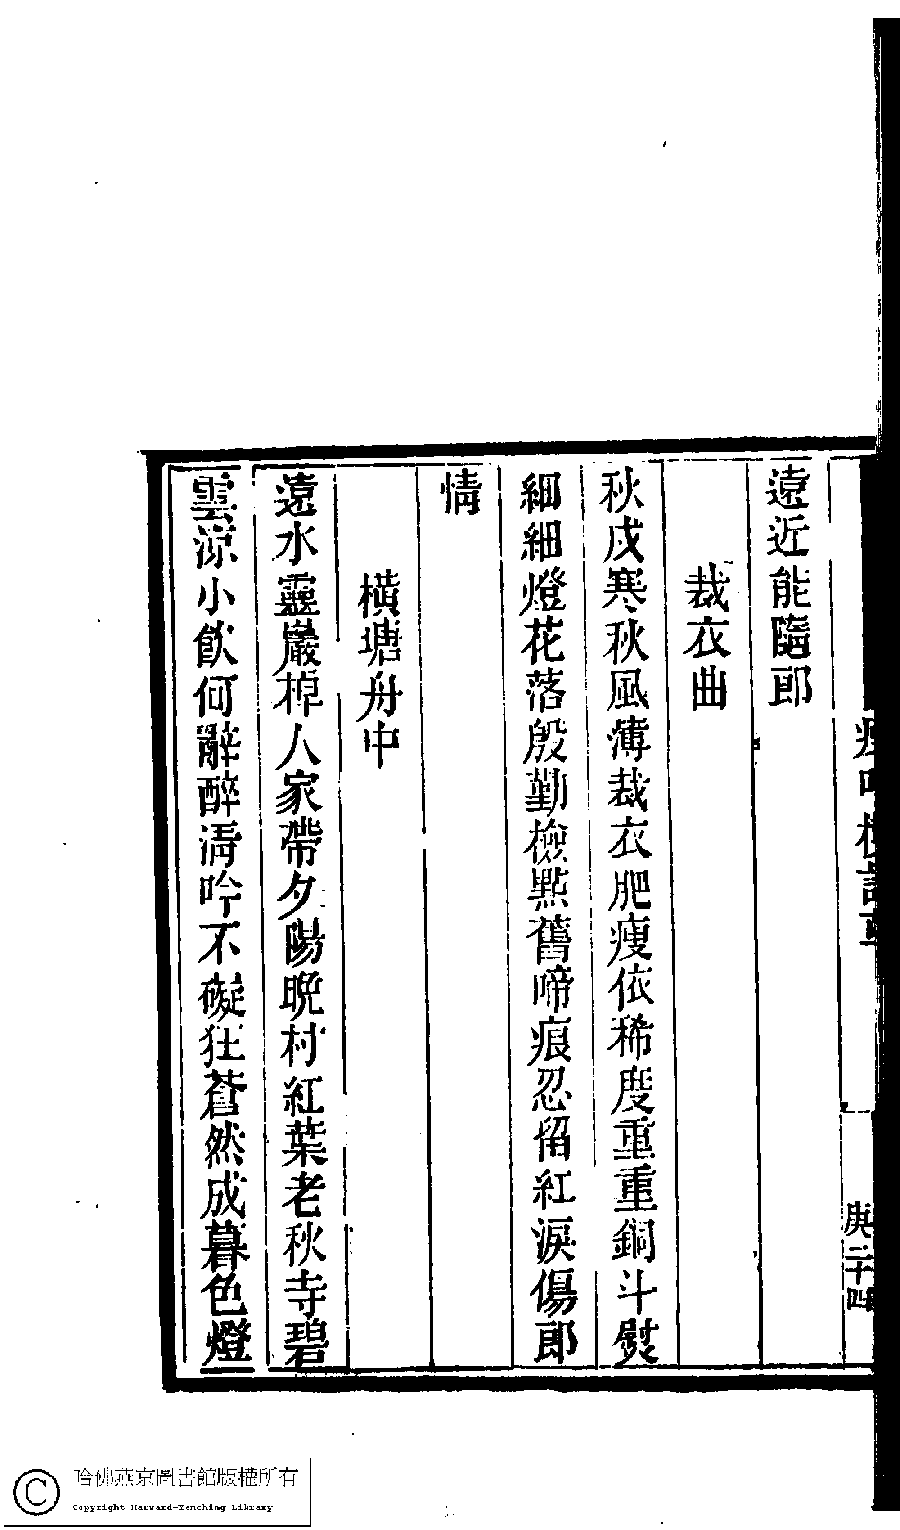 遠近能隨郎
裁衣曲
秋戍寒秋風薄裁衣肥瘦依稀度重重銅斗熨
細細燈花落殷勤檢點舊啼痕忍畱紅淚傷郎
情
橫塘舟中
遠水靈巖棹人家帶夕陽晩村紅葉老秋寺碧
雲涼小飮何辭醉淸吟不礙狂蒼然成暮色燈
庚二十四
哈佛燕京圖書館版權所有
Copyright Harvard-Yenching Library